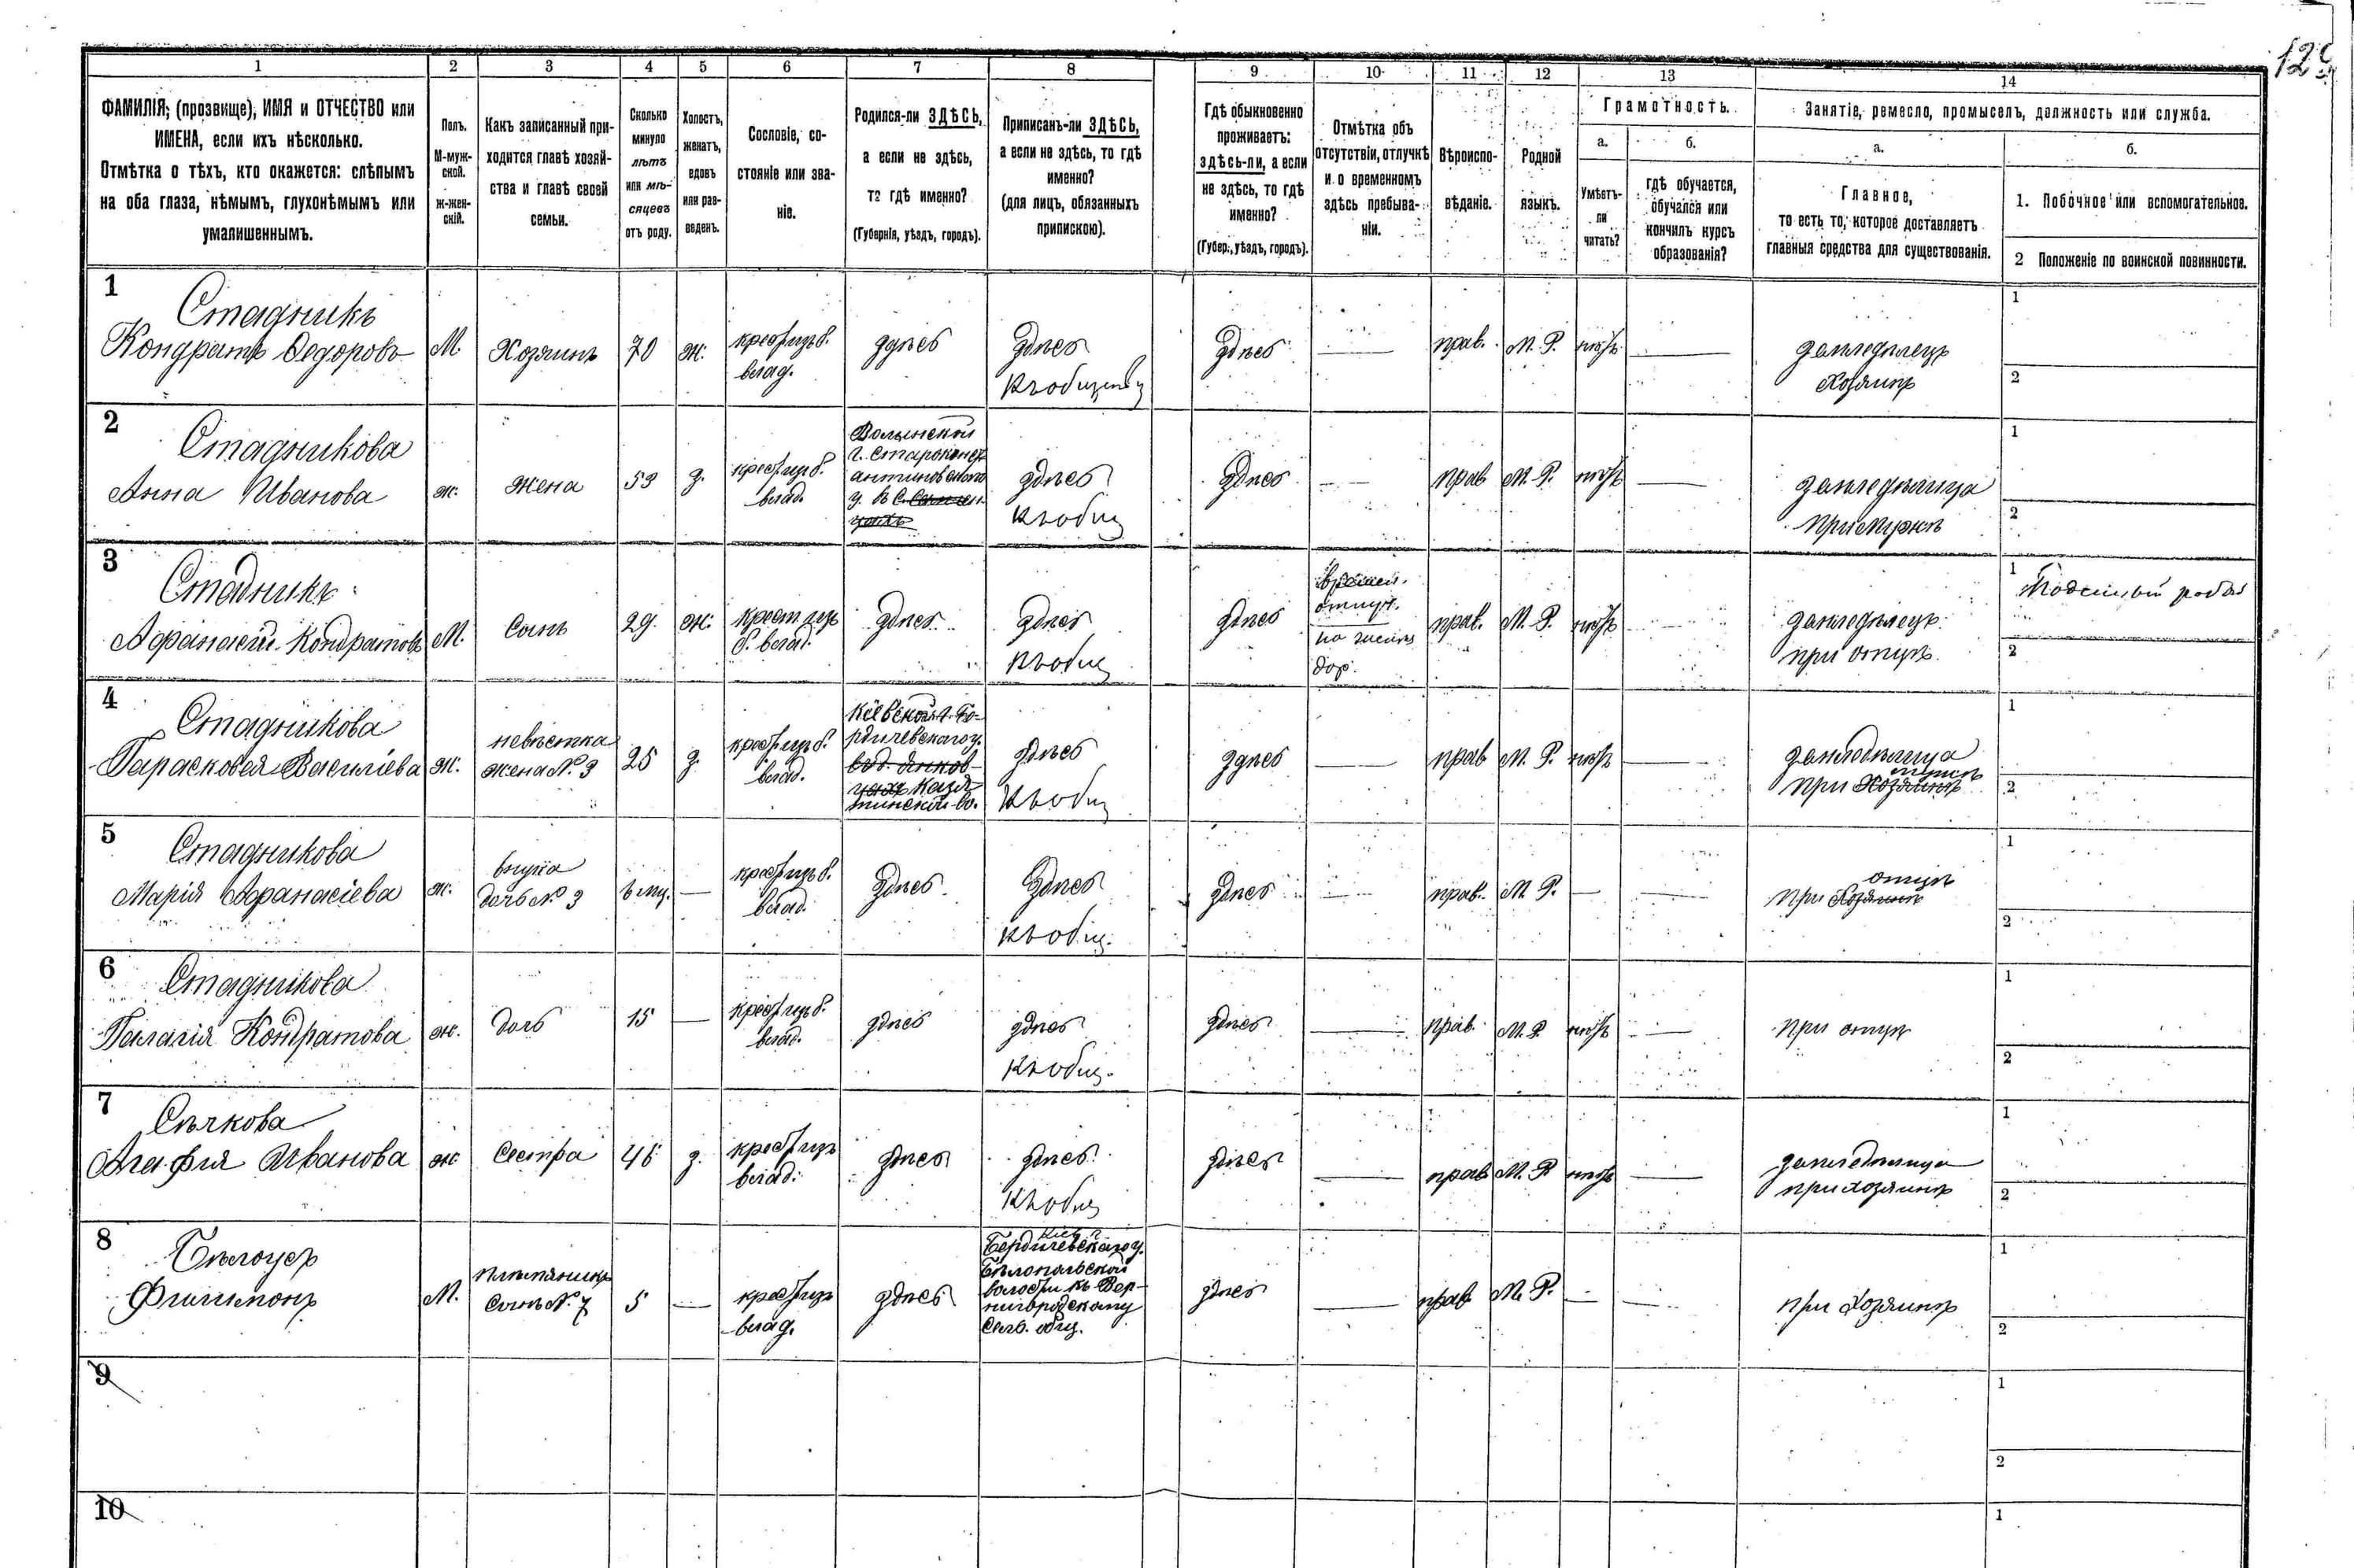 12
1 2 3 4 5 6 7 8 9 10 11 12 13 14
ФАМИЛІЯ; (прозвище), ИМЯ и ОТЧЕСТВО или
ИМЕНА, если ихъ нѣсколько.
Отмѣтка о тѣхъ, кто окажется: слѣпымъ
на оба глаза, нѣмымъ, глухонѣмымъ или
умалишеннымъ.
Полъ.
М-муж-
ской.
ж-жен-
скій.
Какъ записанный при-
ходится главѣ хозяй-
ства и главѣ своей
семьи.
Сколько
минуло
лѣтъ
или мѣ-
сяцевъ
отъ роду.
Холостъ,
женатъ,
вдовъ
или раз-
веденъ.
Сословіе, со-
стояніе или зва-
ніе.
Родился-ли ЗДѢСЬ,
а если не здѣсь,
то гдѣ именно?
(Губернія, уѣздъ, городъ).
Приписанъ-ли ЗДѢСЬ,
а если не здѣсь, то гдѣ
именно?
(для лицъ, обязанныхъ
припискою).
Гдѣ обыкновенно
проживаетъ:
здѣсь-ли, а если
не здѣсь, то гдѣ
именно?
(Губер., уѣздъ, городъ).
Отмѣтка объ
отсутствіи, отлучкѣ
и о временномъ
здѣсь пребыва-
ніи.
Вѣроиспо-
вѣданіе.
Родной
языкъ.
Грамотность.
а.
Умѣетъ-
ли
читать?
б.
гдѣ обучается,
обучался или
кончилъ курсъ
образованія?
Занятіе, ремесло, промыселъ, должность или служба.
а.
Главное,
то есть то, которое доставляетъ
главныя средства для существованія.
б.
1. Побочное или вспомогательное.
2 Положеніе по воинской повинности.
1
Стадникъ
Кондратъ Ѳедоровъ
М. Хозяинъ 70 ж.
крест. изъ б.
влад.
здѣсь
здѣсь
къ обществу
здѣсь — прав. М. Р. нѣтъ —
земледѣлецъ
хозяинъ
1
2
2
Стадникова
Анна Иванова
ж. жена 59 з.
крест. изъ б.
влад.
Волынской
г. Староконст
антиновского
у. въ с.
здѣсь
къ общ
здѣсь — прав М. Р. нѣтъ —
земледѣлица
при мужѣ
1
2
3
Стадникъ
Афанасій Кондратовъ
М. Сынъ 29 ж.
крест изъ
б. влад.
здѣсь
здѣсь
къ общ
здѣсь
времен.
отлуч.
дор.
прав. М. Р. нѣтъ —
земледѣлецъ
при отцѣ
1
2
4
Стадникова
Парасковея Василіева
ж.
невѣстка
жена № 3
25 з.
крест. изъ б.
влад.
Кіевской г. Бе-
рдичевскаго у.
здѣсь
къ общ
здѣсь — прав М. Р. нѣтъ —
земледѣлица
при хозяинѣ
1
2
5
Стадникова
Марія Афанасіева
ж.
внука
дочь № 3
6 мц. —
крест. изъ б.
влад.
здѣсь
здѣсь
къ общ.
здѣсь — прав. М. Р. — —
отцѣ
при хозяинѣ
1
2
6
Стадникова
Пелагія Кондратова
ж. дочь 15 —
крест. изъ б.
влад.
здѣсь
здѣсь
къ общ.
здѣсь — прав. М. Р. нѣтъ —
при отцѣ
1
2
7
Сѣчкова
Агафія Иванова
ж. Сестра 46 з.
крест. изъ
влад.
здѣсь
здѣсь
къ общ
здѣсь — прав М. Р. нѣтъ —
земледѣлица
при хозяинѣ
1
2
8
Бѣлоусъ
Филимонъ
М.
племянникъ
Сынъ № 7
5 —
крест. изъ
влад.
здѣсь
Кіев. г.
Бердичевскаго у.
Бѣлопольской
волости къ Вер-
нигородскому
сель. общ.
здѣсь — прав. М. Р. — —
при хозяинѣ
1
2
9
1
2
10
1